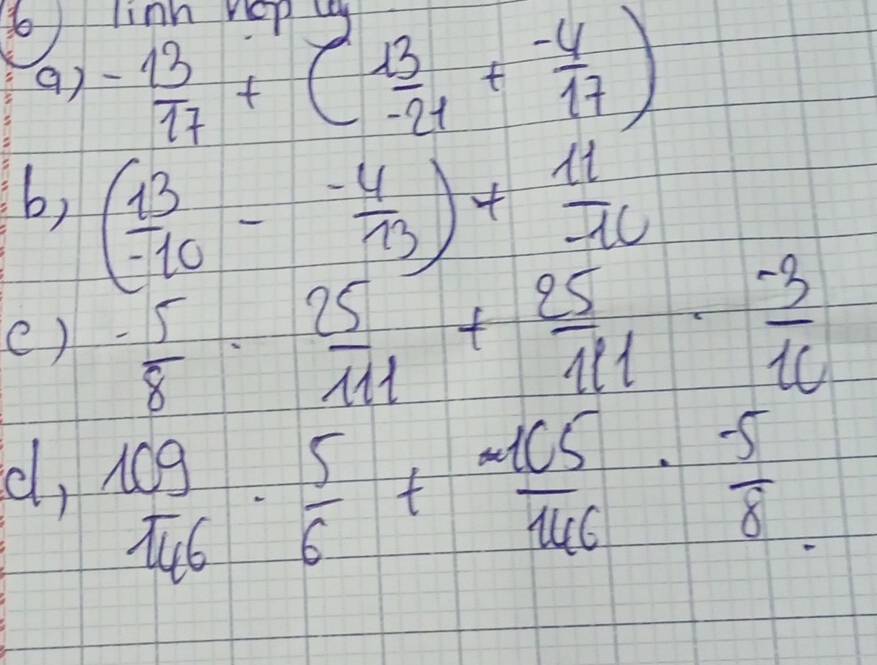 6) Tính hợp lý
a) -13/17 + (13/-21 + -4/17)
b, (13/-10 - -4/13) + 11/-10
c) -5/8 . 25/111 + 25/111 . -3/10
d, 109/146 . 5/6 + -105/146 . -5/8.